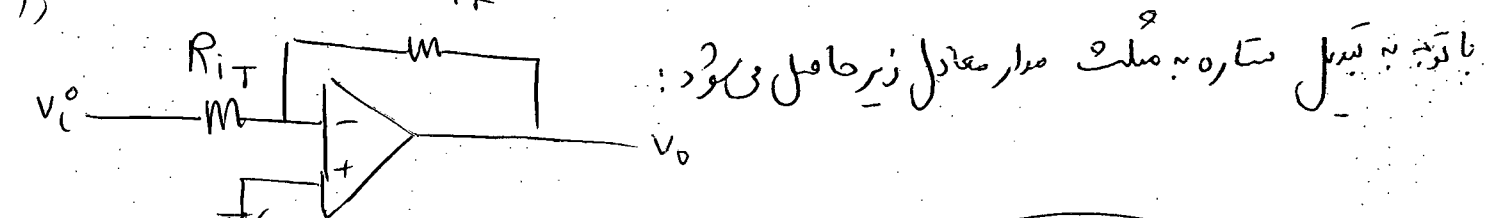 1)
با توجه به تبدیل ستاره به مثلث مدار معادل زیر حاصل می‌شود :
R_iT
v_i
-
v_o
+